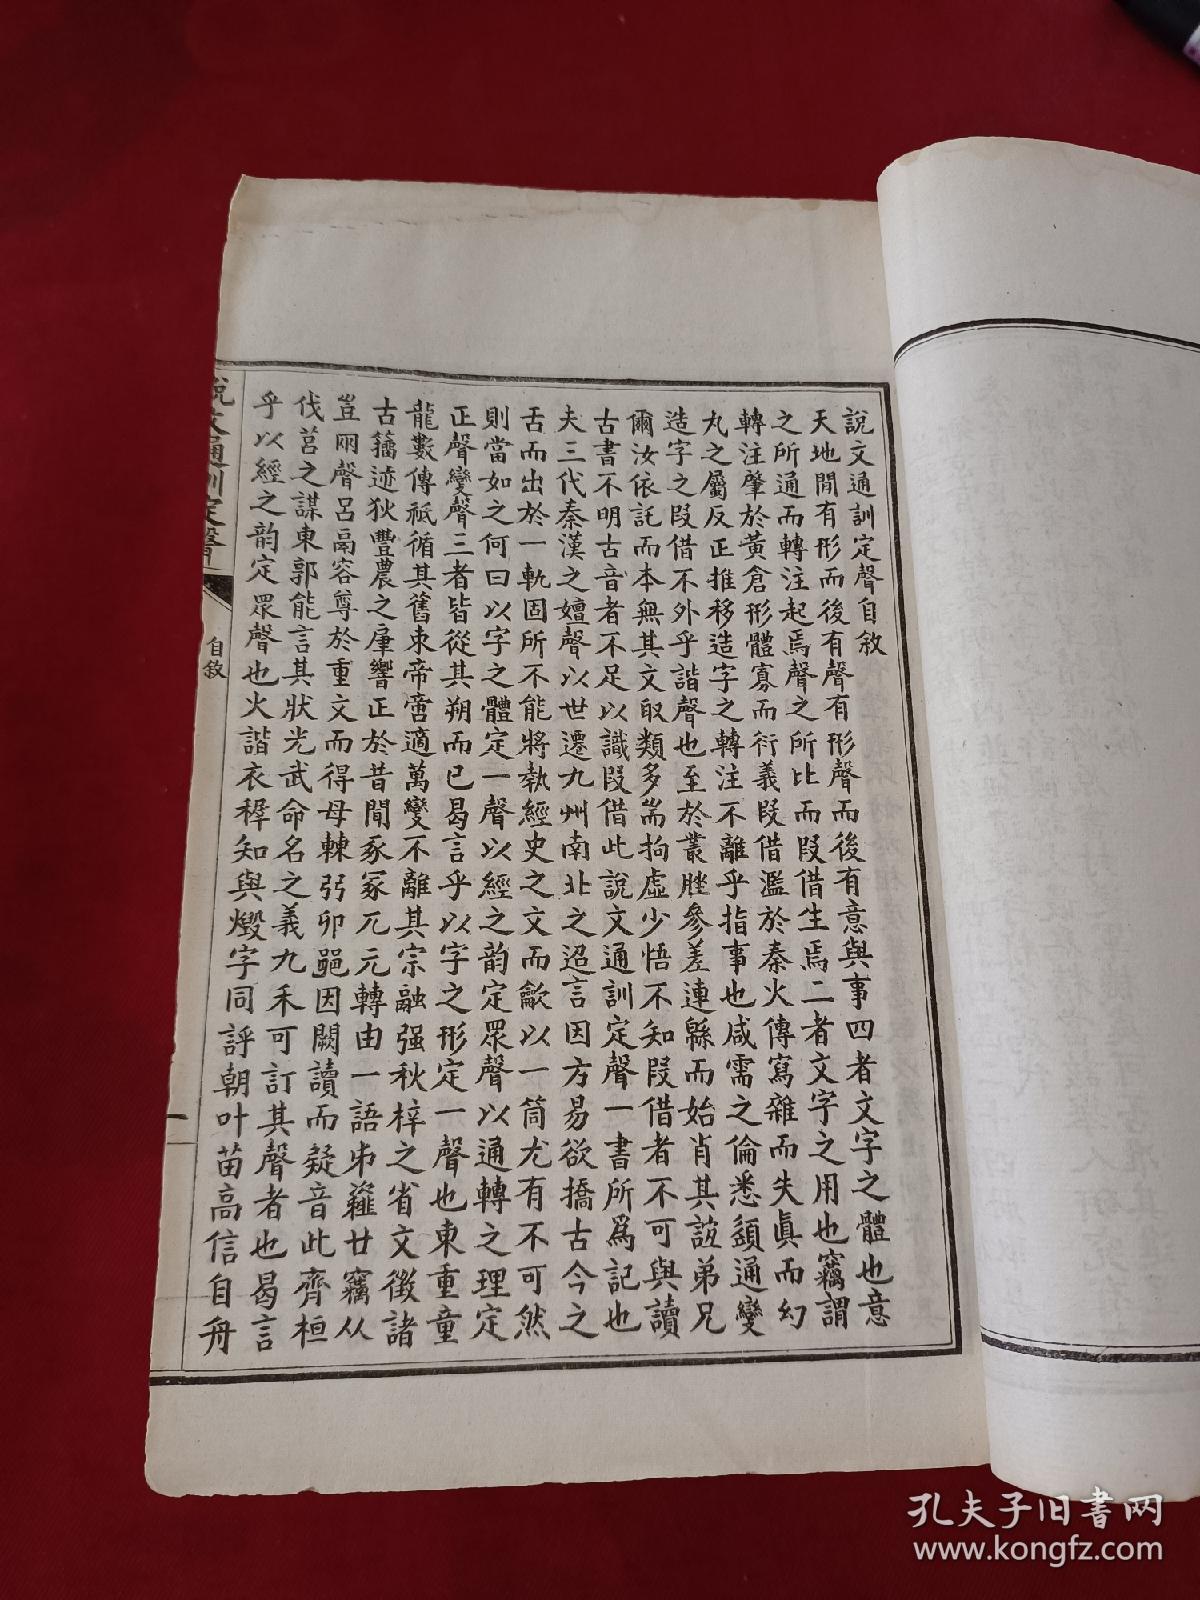 說文通訓定聲自敘
天地閒有形而後有聲有形聲而後有意與事四者文字之體也意
之所通而轉注起焉聲之所比而叚借生焉二者文字之用也竊謂
轉注肇於黃倉形體寡而衍義叚借濫於秦火傳寫雜而失眞而幻
丸之屬反正推移造字之轉注不離乎指事也咸需之倫悉頿通變
造字之叚借不外乎諧聲也至於叢脞參差連緜而始肖其誼弟兄
爾汝依託而本無其文取類多耑拘虛少悟不知叚借者不可與讀
古書不明古音者不足以識叚借此說文通訓定聲一書所爲記也
夫三代秦漢之嬗聲以世遷九州南北之迢言因方易欲撟古今之
舌而出於一軌固所不能將執經史之文而歙以一筒尤有不可然
則當如之何曰以字之體定一聲以經之韵定眾聲以通轉之理定
正聲變聲三者皆從其朔而已曷言乎以字之形定一聲也東重童
龍數傳祇循其舊朿帝啻適萬變不離其宗融强秋梓之省文徵諸
古籒迹狄豐農之𢈻響正於昔閒豖冢兀元轉由一語𠂔𦼫廿竊从
豈网聲呂鬲容㝵於重文而得母𣍘弜卯𨙨因闕讀而疑音此齊桓
伐莒之謀東郭能言其狀光武命名之義九禾可訂其聲者也曷言
乎以經之韵定眾聲也火諧衣稺知與燬字同評朝叶苗高信自舟
說文通訓定聲
自敘
一
孔夫子旧书网
www.kongfz.com